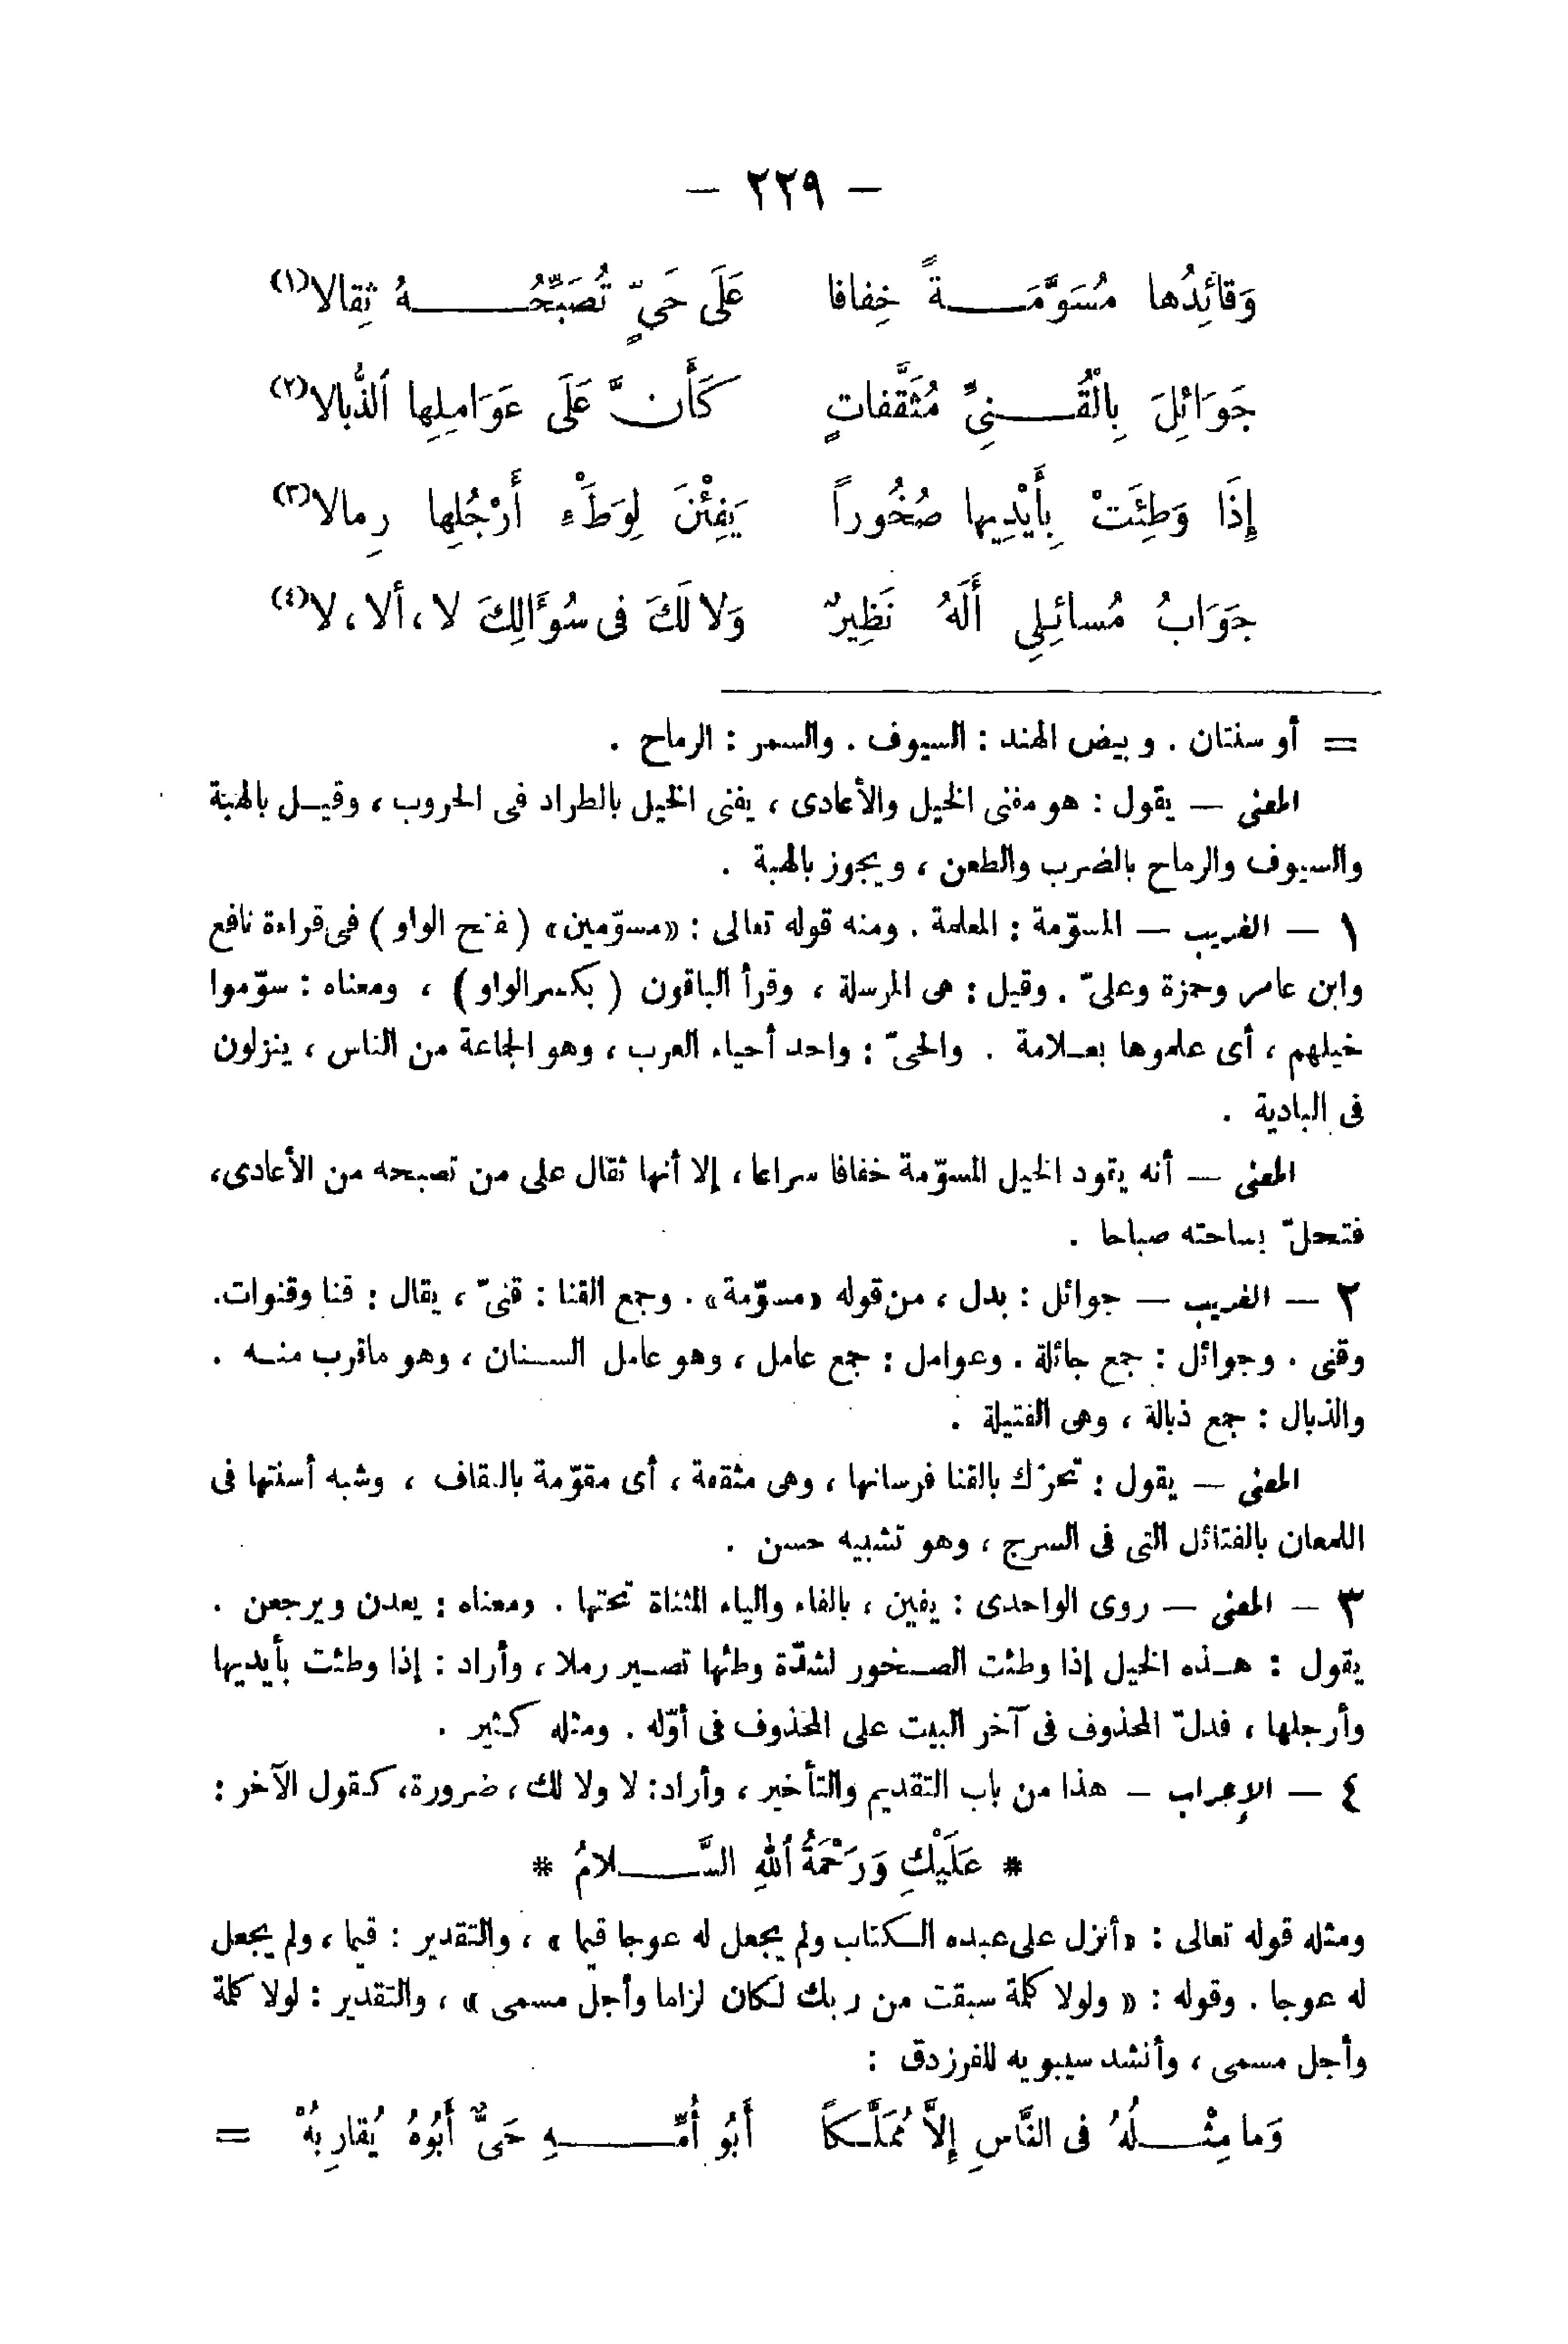 — ٢٢٩ —
وَقائِدُها مُسَوَّمَةً خِفافا عَلَى حَيٍّ تُصَبِّحُهُ ثِقالا(١)
جَوَائِلَ بِالْقُنِيِّ مُثَقَّفاتٍ كَأَنَّ عَلَى عَوَامِلِها الذُّبالا(٢)
إِذَا وَطِئَتْ بِأَيْدِيها صُخُوراً يَفِئْنَ لِوَطْءِ أَرْجُلِها رِمالا(٣)
جَوَابُ مُسائِلِي أَلَهُ نَظِيرٌ وَلا لَكَ فى سُؤَالِكَ لا، ألا، لا(٤)
= أو سنتان . وبيض الهند : السيوف . والسمر : الرماح .
المعنى — يقول : هو مفنى الخيل والأعادى ، يفنى الخيل بالطراد فى الحروب ، وقيل بالهبة
والسيوف والرماح بالضرب والطعن ، ويجوز بالهبة .
١ — الغريب — المسوّمة : المعلمة . ومنه قوله تعالى : «مسوّمين» (فتح الواو) فى قراءة نافع
وابن عامر وحمزة وعلىّ . وقيل : هى المرسلة ، وقرأ الباقون ( بكسر الواو ) ، ومعناه : سوّموا
خيلهم ، أى علموها بعلامة . والحىّ : واحد أحياء العرب ، وهو الجماعة من الناس ، ينزلون
فى البادية .
المعنى — أنه يقود الخيل المسوّمة خفافا سراعا ، إلا أنها ثقال على من تصبحه من الأعادى،
فتحلّ بساحته صباحا .
٢ — الغريب — جوائل : بدل ، من قوله «مسوّمة» . وجمع القنا : قنىّ ، يقال : قنا وقنوات.
وقنى . وجوائل : جمع جائلة . وعوامل : جمع عامل ، وهو عامل السنان ، وهو ماقرب منه .
والذبال : جمع ذبالة ، وهى الفتيلة .
المعنى — يقول : تحرّك بالقنا فرسانها ، وهى مثقفة ، أى مقوّمة بالثقاف ، وشبه أسنتها فى
اللمعان بالفتائل التى فى السرج ، وهو تشبيه حسن .
٣ — المعنى — روى الواحدى : يفين ، بالفاء والياء المثناة تحتها . ومعناه : يعدن ويرجعن .
يقول : هذه الخيل إذا وطئت الصخور لشدّة وطئها تصير رملا ، وأراد : إذا وطئت بأيديها
وأرجلها ، فدلّ المحذوف فى آخر البيت على المحذوف فى أوّله . ومثله كثير .
٤ — الإعراب — هذا من باب التقديم والتأخير ، وأراد: لا ولا لك ، ضرورة، كقول الآخر :
* عَلَيْكِ وَرَحْمَةُ اللهِ السَّلامُ *
ومثله قوله تعالى : «أنزل على عبده الكتاب ولم يجعل له عوجا قيما » ، والتقدير : قيما ، ولم يجعل
له عوجا . وقوله : « ولولا كلمة سبقت من ربك لكان لزاما وأجل مسمى » ، والتقدير : لولا كلمة
وأجل مسمى ، وأنشد سيبويه للفرزدق :
وَما مِثْلُهُ فى النَّاسِ إِلاَّ مُمَلَّكاً أَبُو أُمِّهِ حَىٌّ أَبُوهُ يُقارِبُهْ =